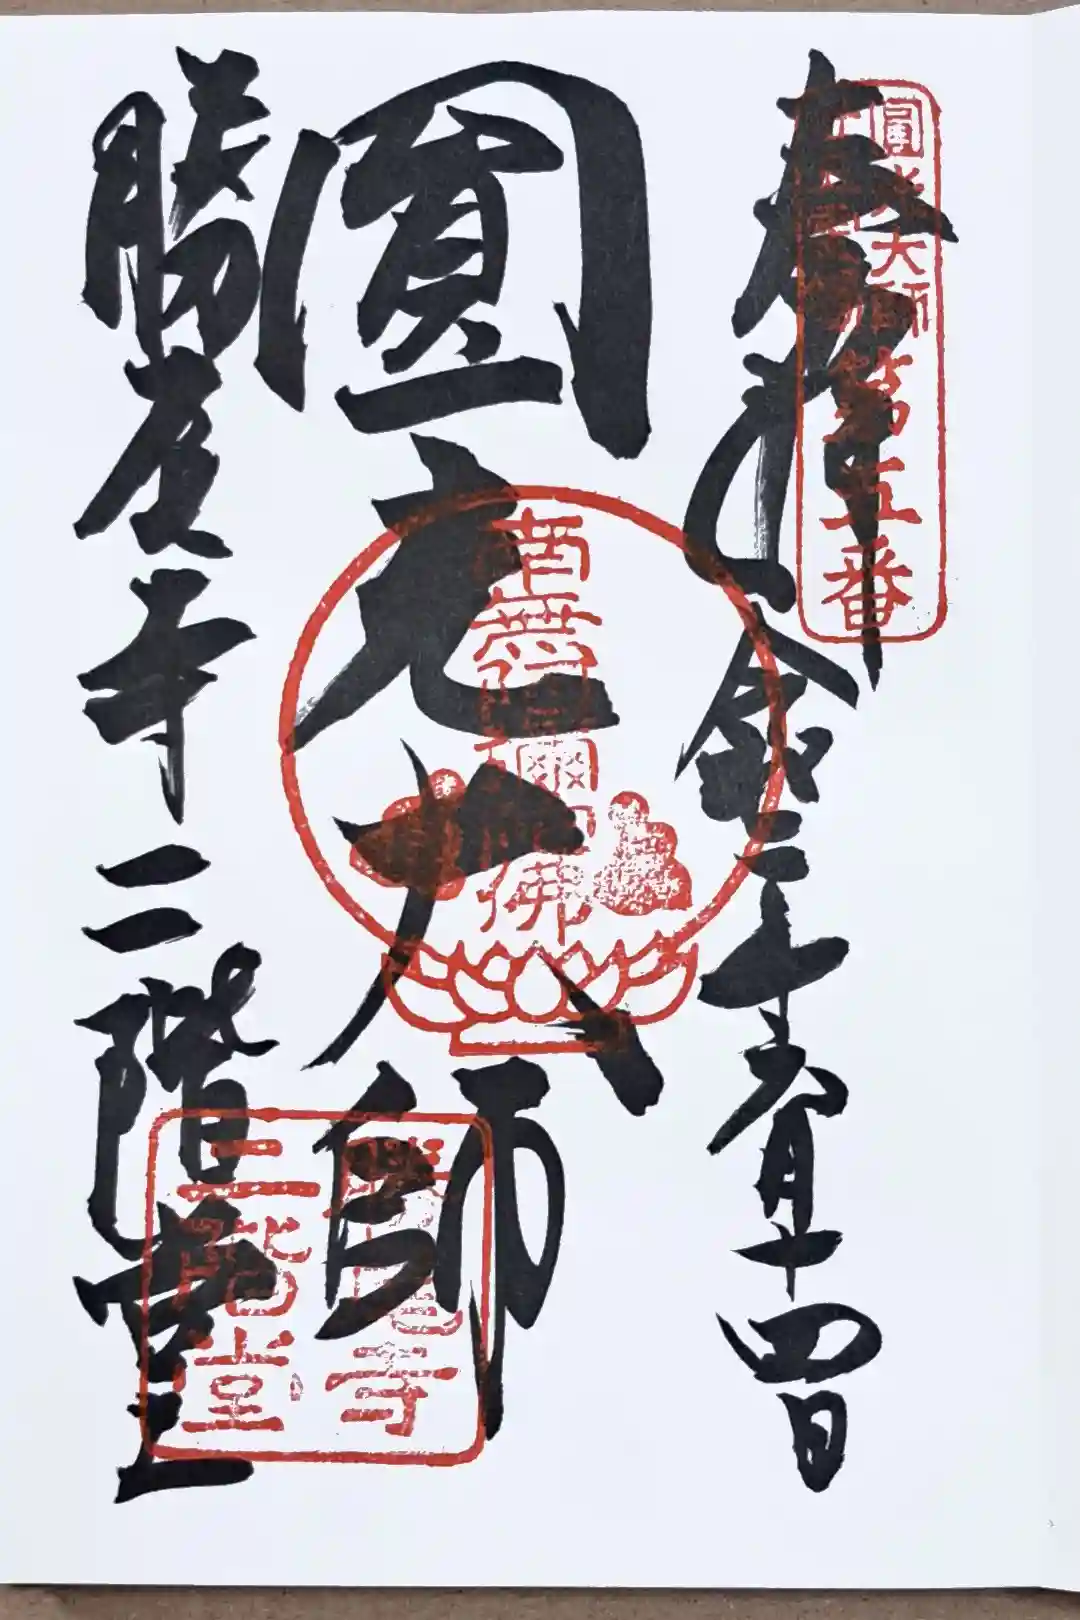 奉拝 令和二年月十四日
圓光大師
二十五霊場
第五番
圓光大師
南無阿彌陀佛
勝尾寺二階堂
勝尾寺
二階堂